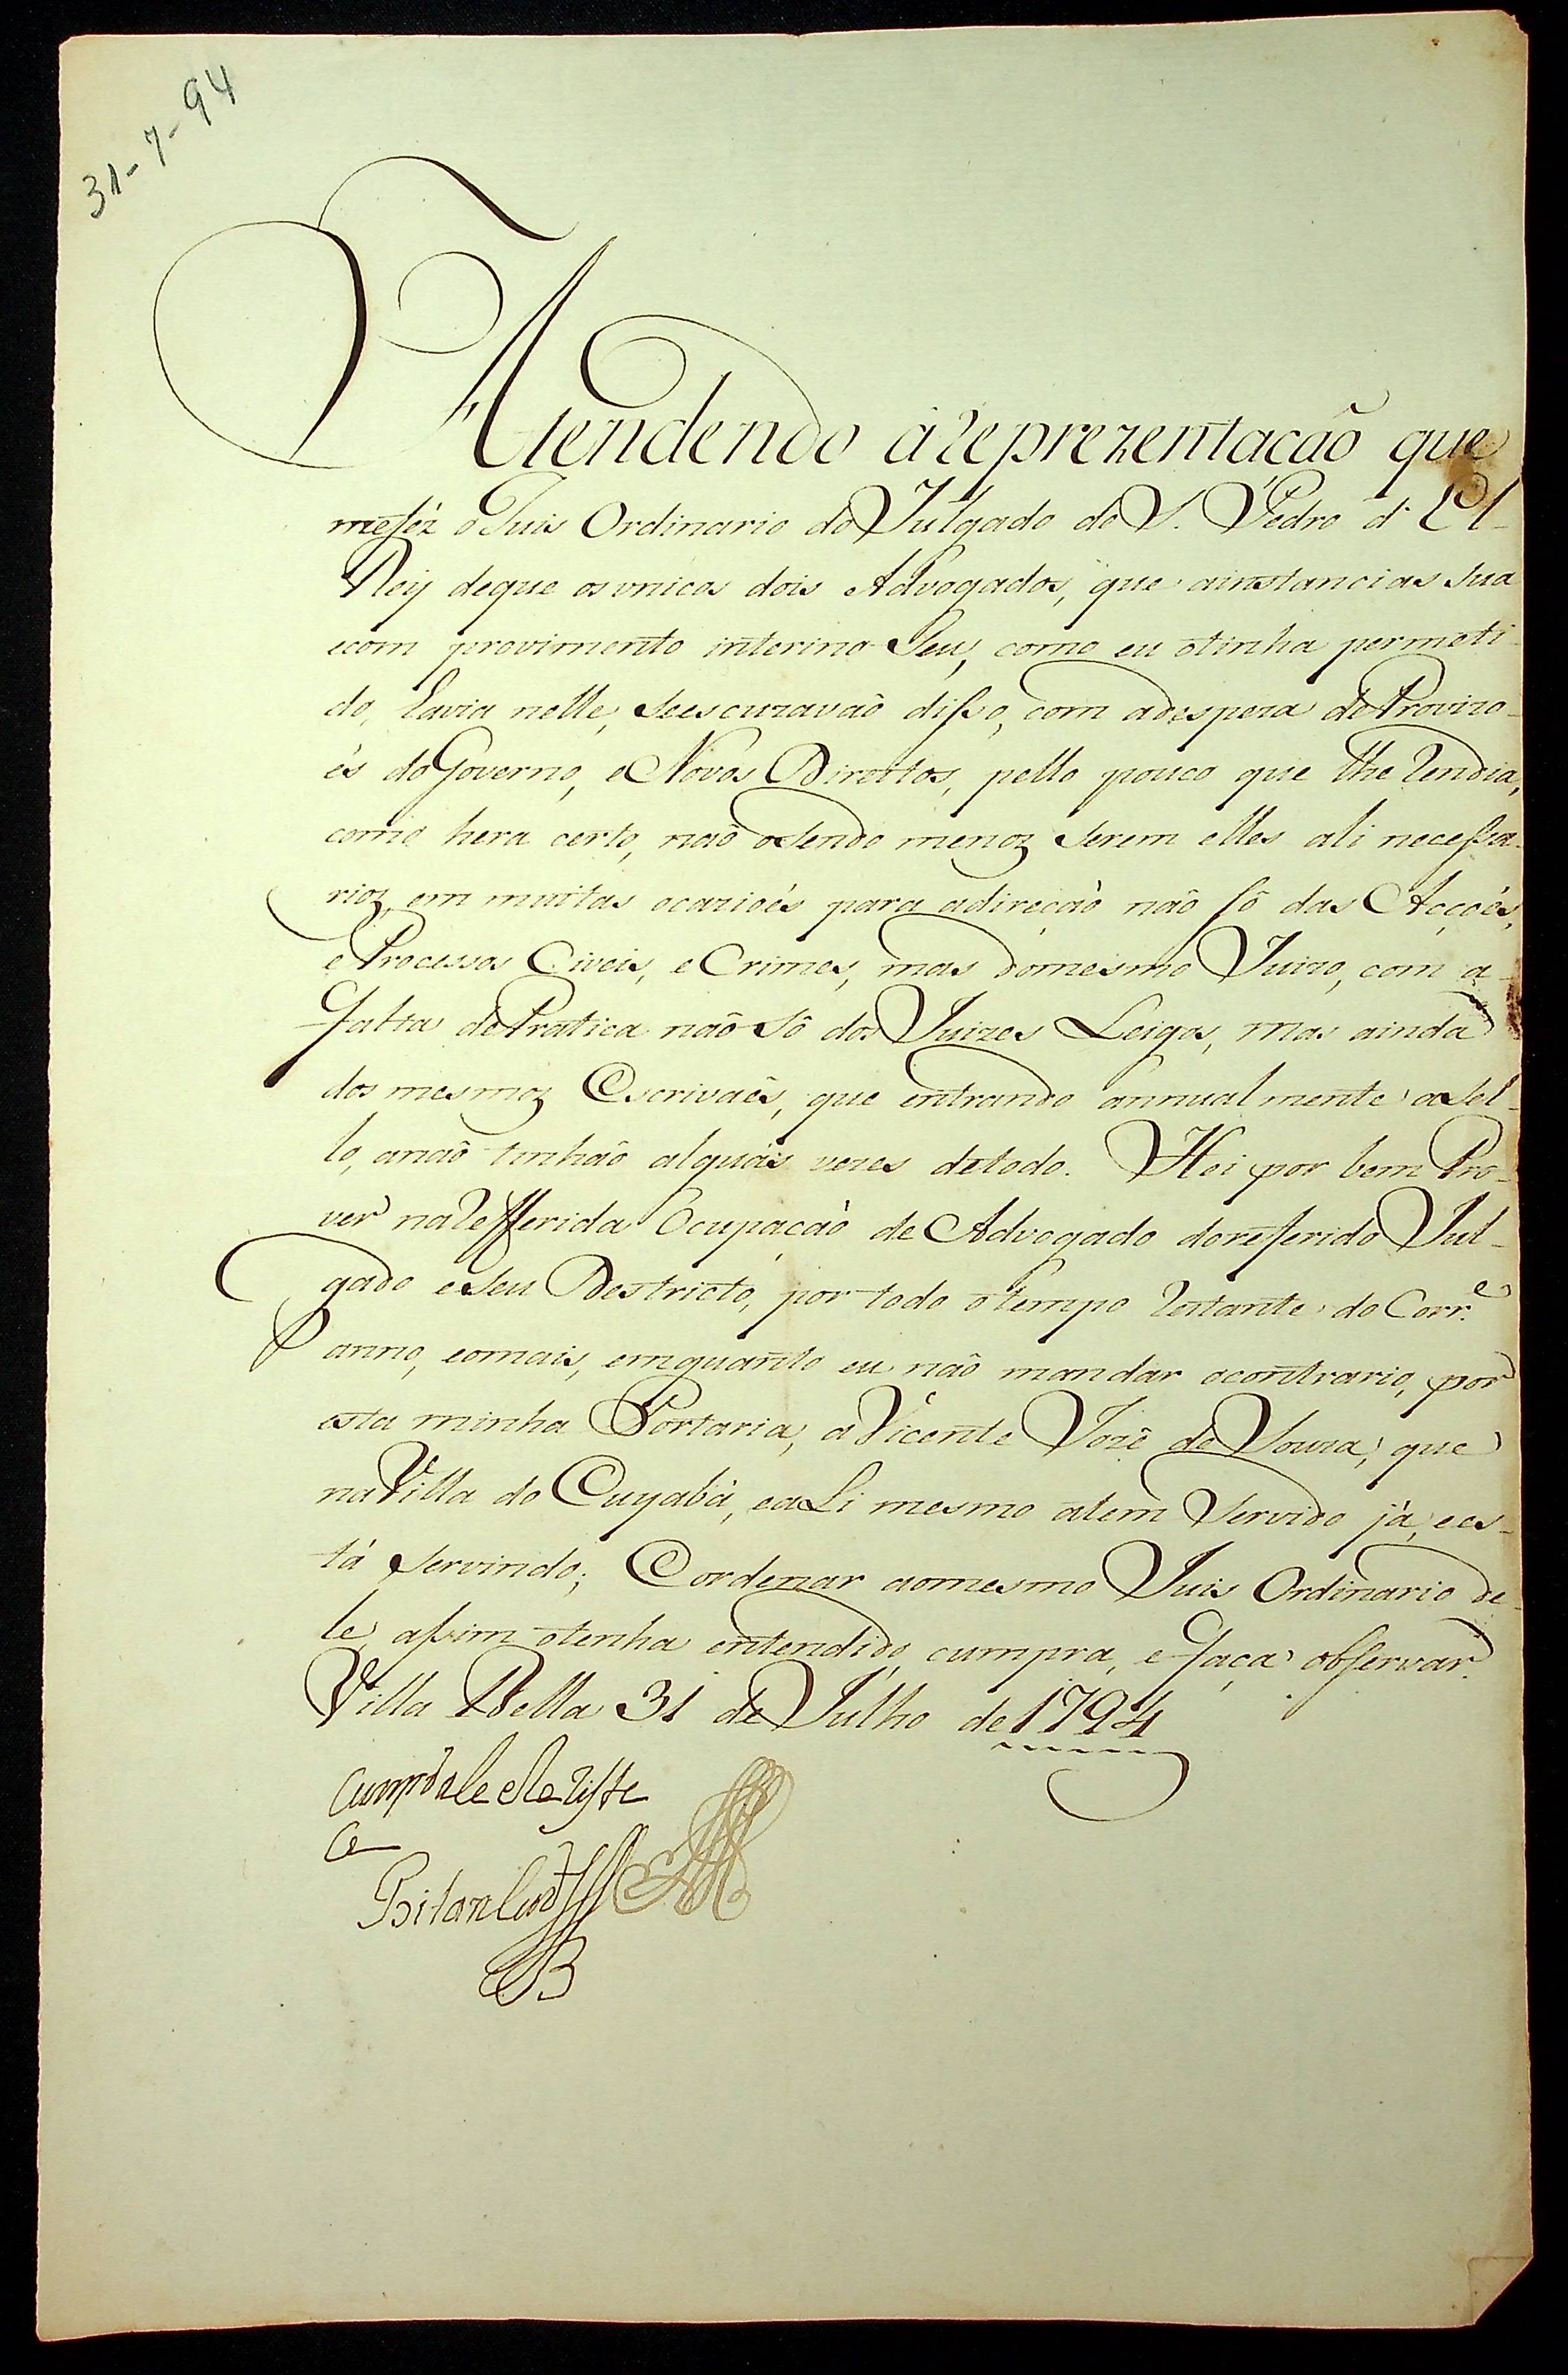 31-7-94
Atendendo áreprezentacaõ que
mefés o Juis Ordinario do Julgado de S. Pedro d' El-
Reÿ deque os vnicos dois Advogados, que ainstancias sua
ecom provimento interino Seu, como eu otinha permeti-
do, havia nelle, seescuzavaõ disso, com adespeza de Provizo-
ẽs do Governo, e Novos Direitos, pello pouco que lhe rendia,
como hera certo, naõ osendo menoz serem elles ali necessa-
rioz em muitas ocazioẽs para adireçaõ naõ sô das Acçoẽs,
e Processos Civeis, e Crimes, mas domesmo Juizo, com a
falta de Pratica naõ sô dos Juizes Leigos, mas ainda
dos mesmoz Escrivaẽs, que entrando annualmente aSel-
lo, anaõ tinhaõ alguãs vezes detodo. Hei por bem Pro-
ver nareferida Ocupaçaõ de Advogado doreferido Jul-
gado eSeu Destricto, por todo otempo restante do Corr.e
anno, eomais, emquanto eu naõ mandar ocontrario, por
esta minha Portaria, a Vicente Jozê de Souza, que
na Villa do Cuyabá, eali mesmo atem Servido já, ees-
tá servindo; Eordenar aomesmo Juis Ordinario de-
le, assim otenha entendido, cumpra, e faça observar.
Villa Bella 31 de Julho de 1794
Cumprase eRe